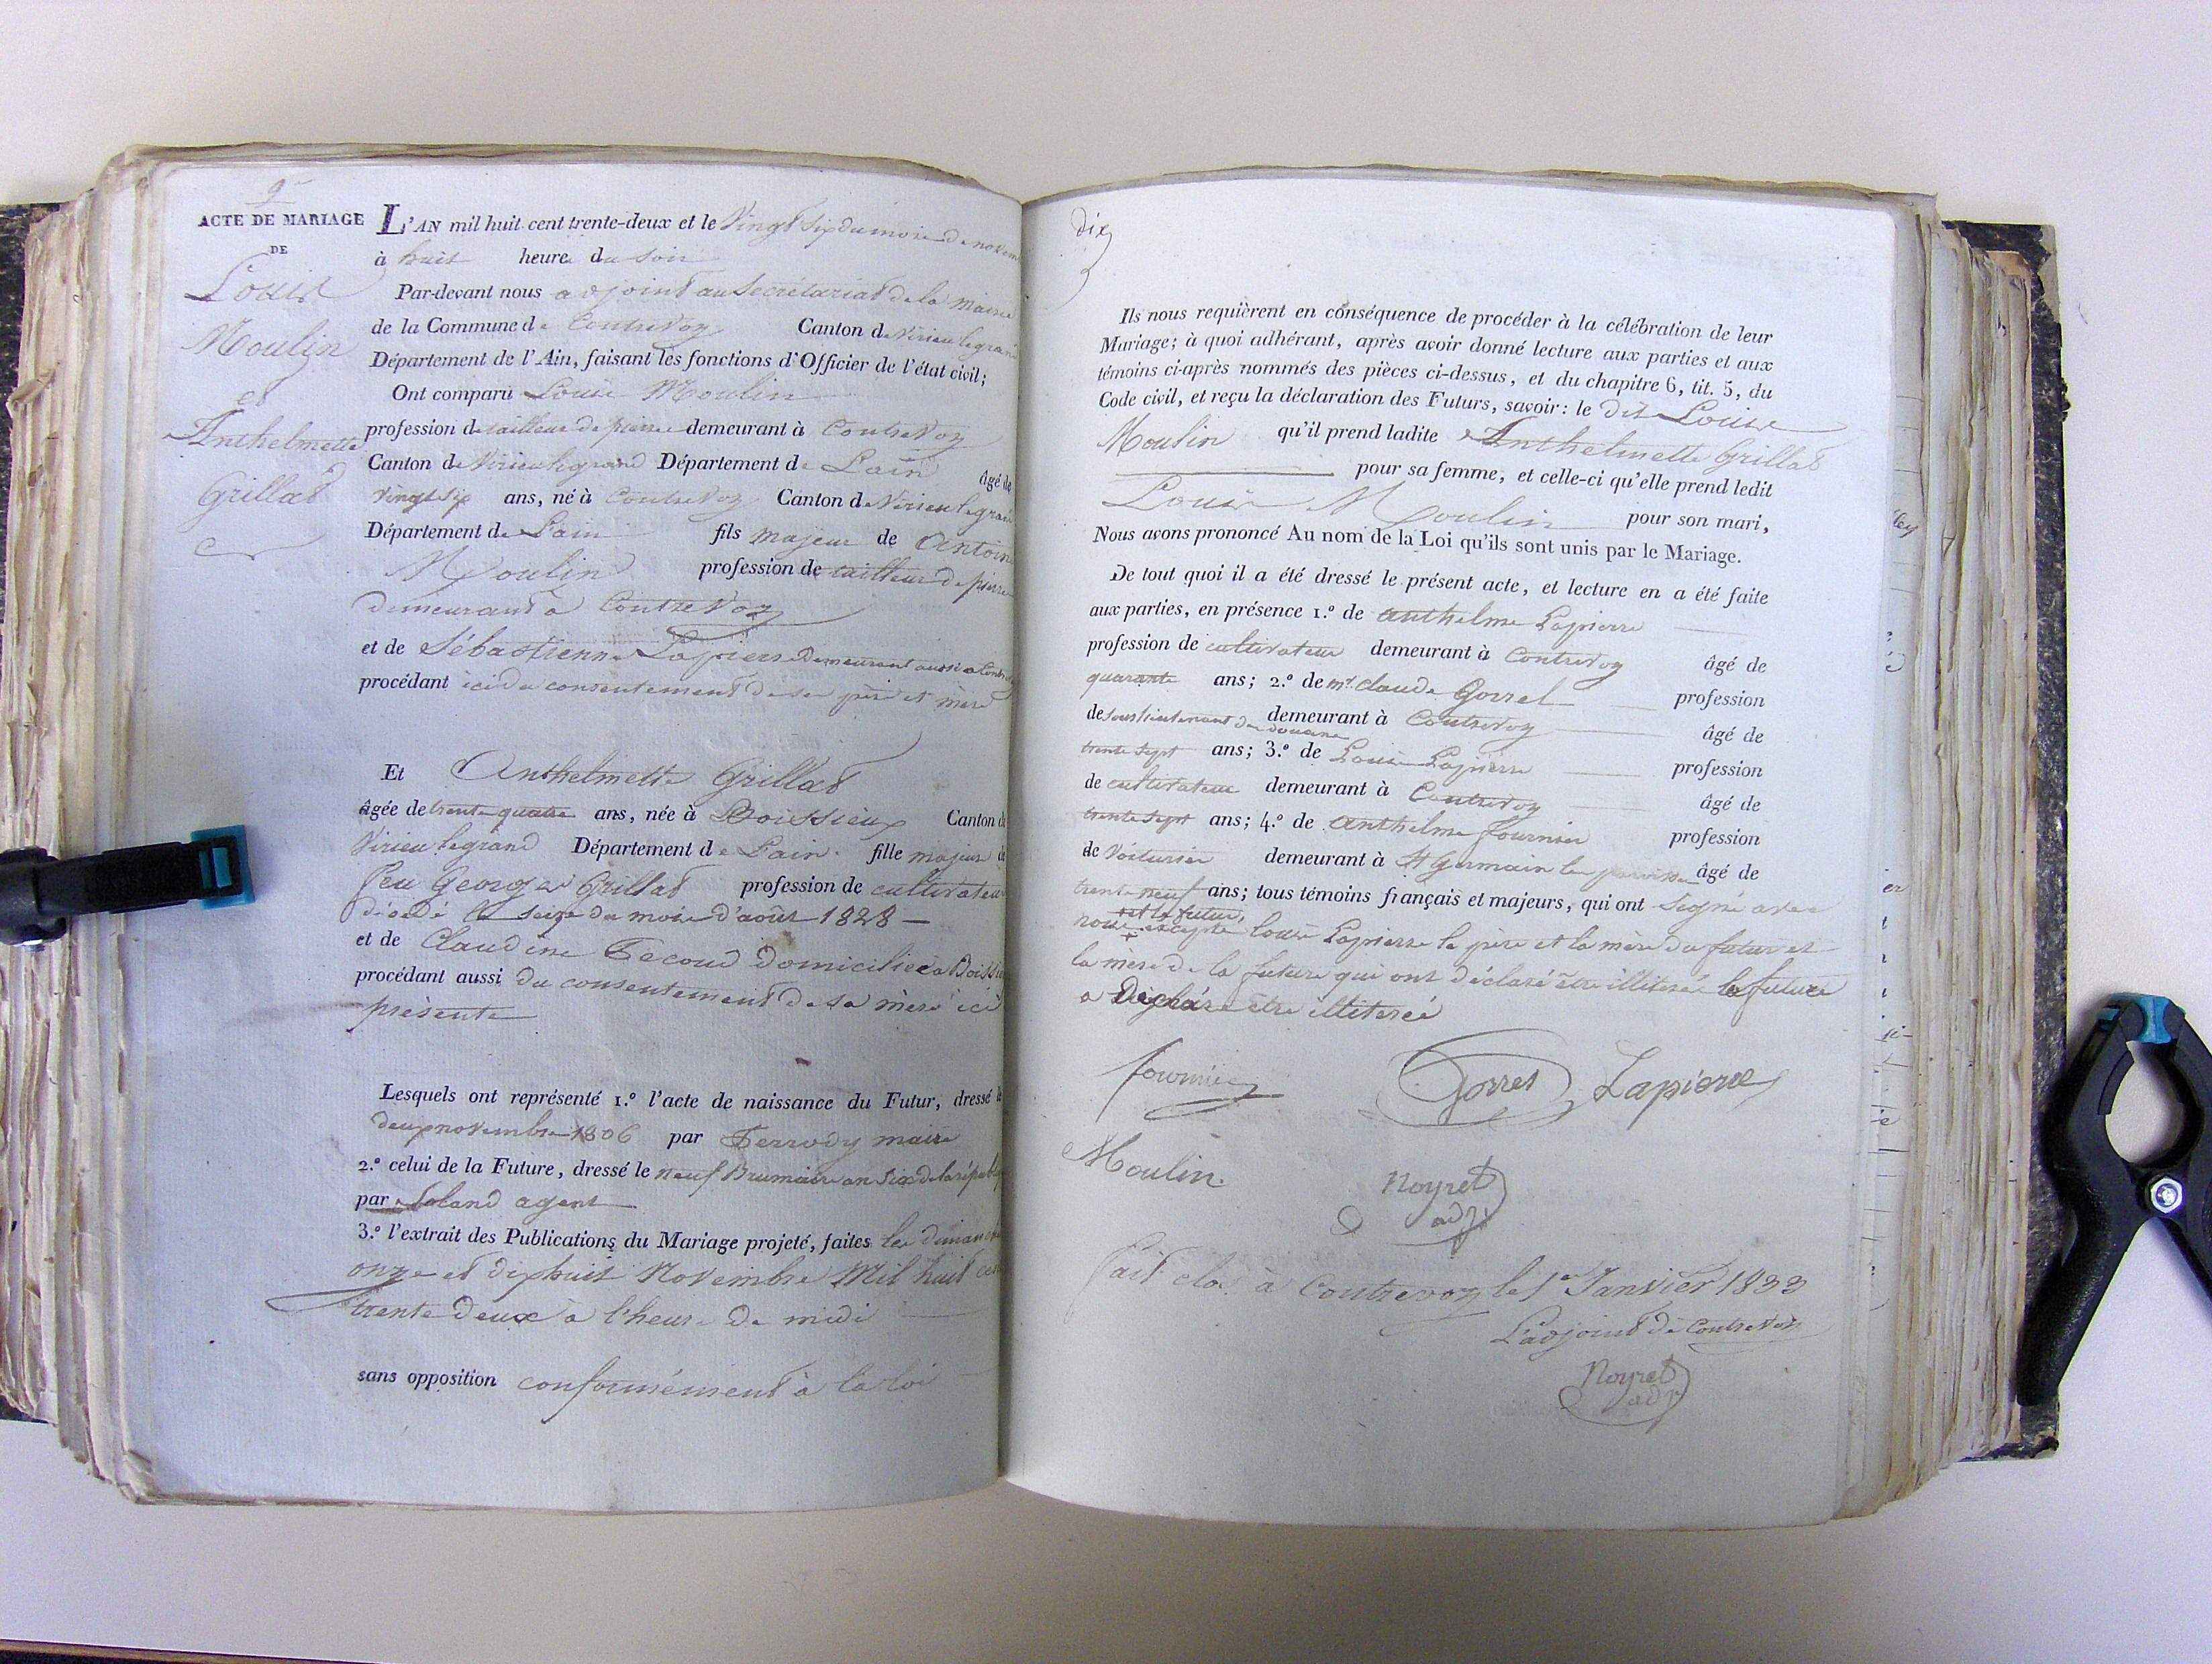 9
ACTE DE MARIAGE
DE
Louis
Moulin
et
Anthelmette
Grillat
L'AN mil huit cent trente-deux et le Vingt Six du mois de novem
à huit heure du Soir
Par-devant nous adjoint au Secrétariat de la mairie
de la Commune de Contrevoz Canton de Virieu legrand
Département de l'Ain, faisant les fonctions d'Officier de l'état civil;
Ont comparu Louis Moulin
profession de tailleur de pierre demeurant à Contrevoz
Canton de Virieu legrand Département de Lain âgé de
Vingt Six ans, né à Contrevoz Canton de Virieu legran
Département de Lain fils majeur de Antoin
Moulin profession de tailleur de pierre
demeurant à Contrevoz
et de Sébastienne Lapierre demeurant aussi a Contr
procédant ici du consentement de ses père et mère
Et Anthelmette Grillat
âgée de trente quatre ans, née à Boissieux Canton de
Virieu legrand Département de Lain. fille majeure de
feu George Grillat profession de cultivateur
décédé le seize du mois d'août 1828 —
et de Claudine Tecoud domiciliée a Boissie
procédant aussi du consentement de sa mère ici
présente
Lesquels ont représenté 1.º l'acte de naissance du Futur, dressé le
deux novembre 1806 par Ferrody maire
2.º celui de la Future, dressé le neuf Brumaire an Six de la républ
par Soland agent
3.º l'extrait des Publications du Mariage projeté, faites les dimanch
onze et dix huit Novembre Mil huit cen
trente deux à l'heure de midi
sans opposition conformément à la loi
dix
Ils nous requièrent en conséquence de procéder à la célébration de leur
Mariage; à quoi adhérant, après avoir donné lecture aux parties et aux
témoins ci-après nommés des pièces ci-dessus, et du chapitre 6, tit. 5, du
Code civil, et reçu la déclaration des Futurs, savoir: le dit Louis
Moulin qu'il prend ladite Anthelmette Grillat
pour sa femme, et celle-ci qu'elle prend ledit
Louis Moulin pour son mari,
Nous avons prononcé Au nom de la Loi qu'ils sont unis par le Mariage.
De tout quoi il a été dressé le présent acte, et lecture en a été faite
aux parties, en présence 1.º de Anthelme Lapierre
profession de cultivateur demeurant à Contrevoz âgé de
quarante ans; 2.º de mr. Claude Gorrel profession
de Sous lieutenant de douane demeurant à Contrevoz âgé de
trente sept ans; 3.º de Louis Lapierre profession
de cultivateur demeurant à Contrevoz âgé de
trente sept ans; 4.º de Anthelme fournier profession
de Voiturier demeurant à St Germain les paroisse âgé de
trente neuf ans; tous témoins français et majeurs, qui ont Signé avec
et le futur,
nous excepté louis Lapierre le père et la mère du futur et
la mère de la future qui ont déclaré être illiteré la future
a Déclaré être illiteréé
fournier
Gorres
Lapierre
Moulin.
Noyret
adj
fait clos à Contrevoz le 1er Janvier 1833
L'adjoint de Contrevoz
Noyret
adj